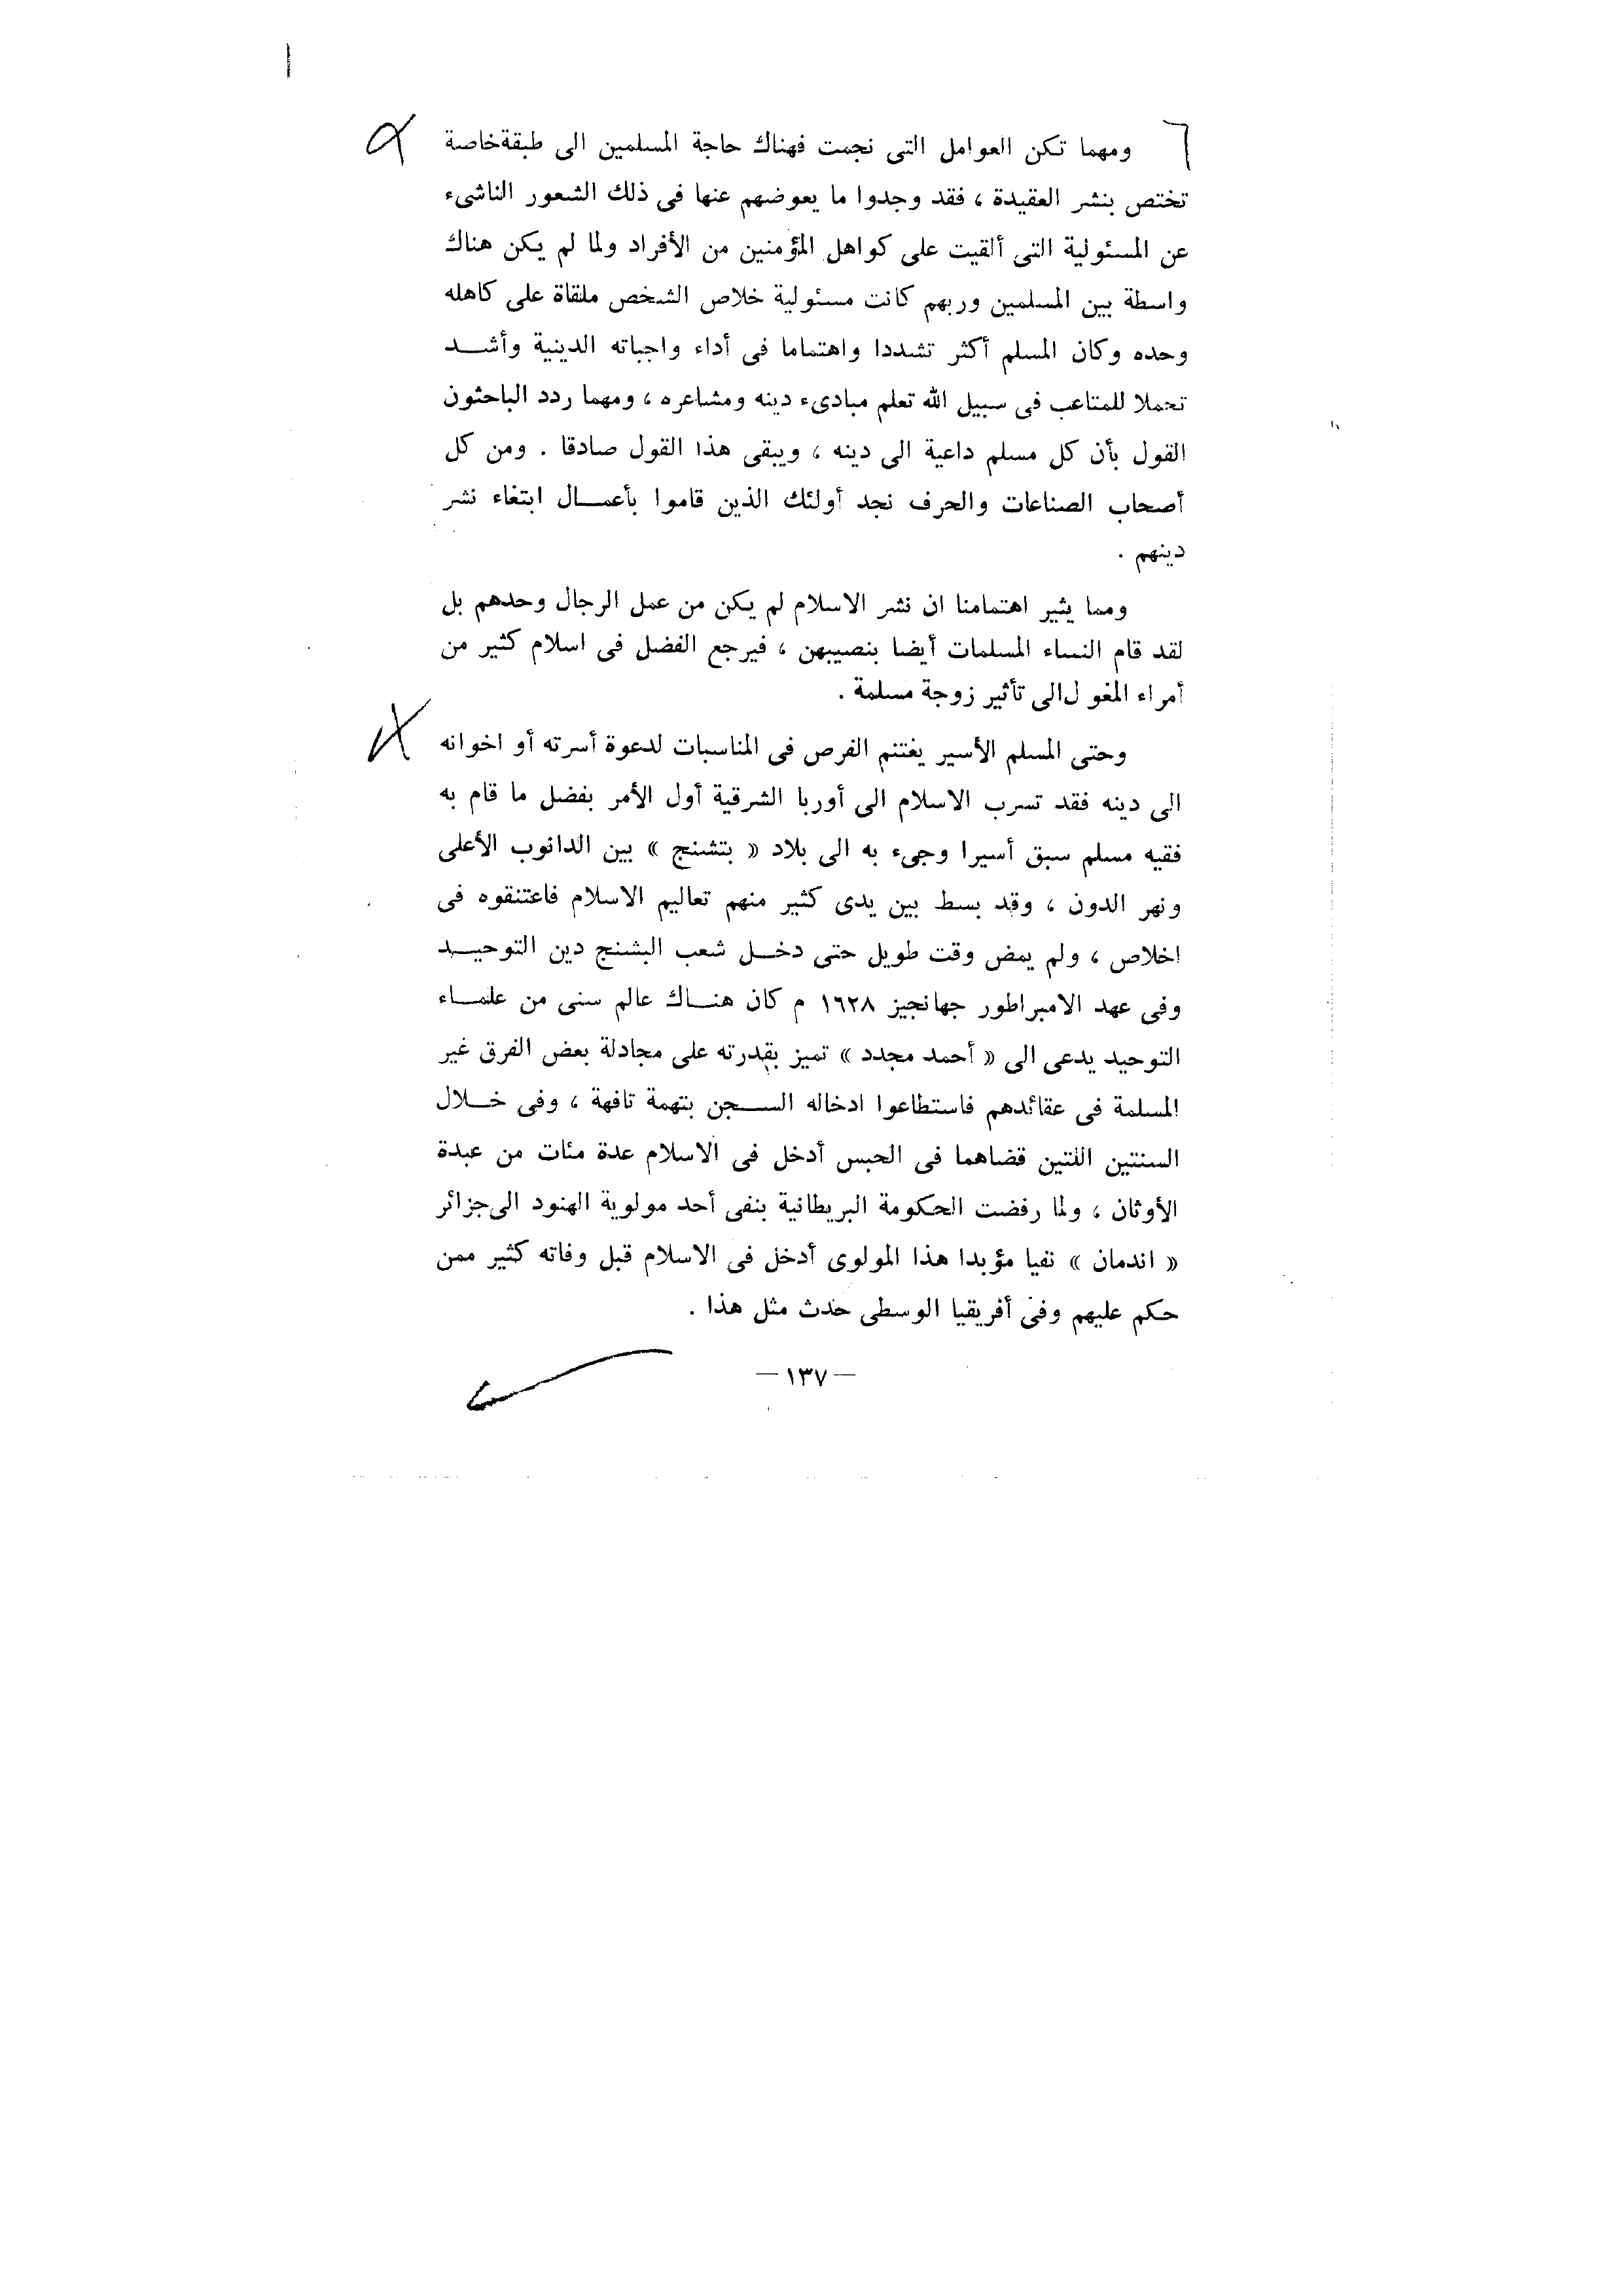 ومهما تكن العوامل التى نجمت فهناك حاجة المسلمين الى طبقة خاصة
تختص بنشر العقيدة ، فقد وجدوا ما يعوضهم عنها فى ذلك الشعور الناشىء
عن المسئولية التى ألقيت على كواهل المؤمنين من الأفراد ولما لم يكن هناك
واسطة بين المسلمين وربهم كانت مسئولية خلاص الشخص ملقاة على كاهله
وحده وكان المسلم أكثر تشددا واهتماما فى أداء واجباته الدينية وأشــد
تحملا للمتاعب فى سبيل الله تعلم مبادىء دينه ومشاعره ، ومهما ردد الباحثون
القول بأن كل مسلم داعية الى دينه ، ويبقى هذا القول صادقا . ومن كل
أصحاب الصناعات والحرف نجد أولئك الذين قاموا بأعمــال ابتغاء نشر
دينهم .
ومما يثير اهتمامنا ان نشر الاسلام لم يكن من عمل الرجال وحدهم بل
لقد قام النساء المسلمات أيضا بنصيبهن ، فيرجع الفضل فى اسلام كثير من
أمراء المغو ل الى تأثير زوجة مسلمة .
وحتى المسلم الأسير يغتنم الفرص فى المناسبات لدعوة أسرته أو اخوانه
الى دينه فقد تسرب الاسلام الى أوربا الشرقية أول الأمر بفضل ما قام به
فقيه مسلم سبق أسيرا وجىء به الى بلاد « بتشنج » بين الدانوب الأعلى
ونهر الدون ، وقد بسط بين يدى كثير منهم تعاليم الاسلام فاعتنقوه فى
اخلاص ، ولم يمض وقت طويل حتى دخــل شعب البشنج دين التوحيــد
وفى عهد الامبراطور جهانجيز ١٦٢٨ م كان هنــاك عالم سنى من علمــاء
التوحيد يدعى الى « أحمد مجدد » تميز بقدرته على مجادلة بعض الفرق غير
المسلمة فى عقائدهم فاستطاعوا ادخاله الســجن بتهمة تافهة ، وفى خــلال
السنتين اللتين قضاهما فى الحبس أدخل فى الاسلام عدة مئات من عبدة
الأوثان ، ولما رفضت الحكومة البريطانية بنفى أحد مولوية الهنود الى جزائر
« اندمان » نفيا مؤبدا هذا المولوى أدخل فى الاسلام قبل وفاته كثير ممن
حكم عليهم وفى أفريقيا الوسطى حدث مثل هذا .
— ١٣٧ —